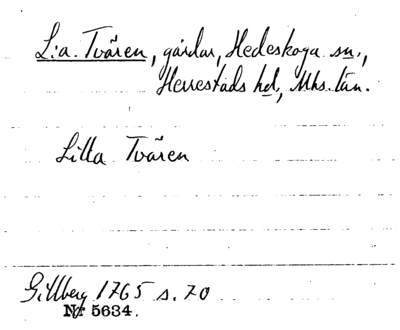 L:a. Tvären, gårdar, Hedeskoga sn.,
Herrestads hd, Mhs. län.
Litta Tvären
Gillberg 1765 s. 70
Nr 5634.